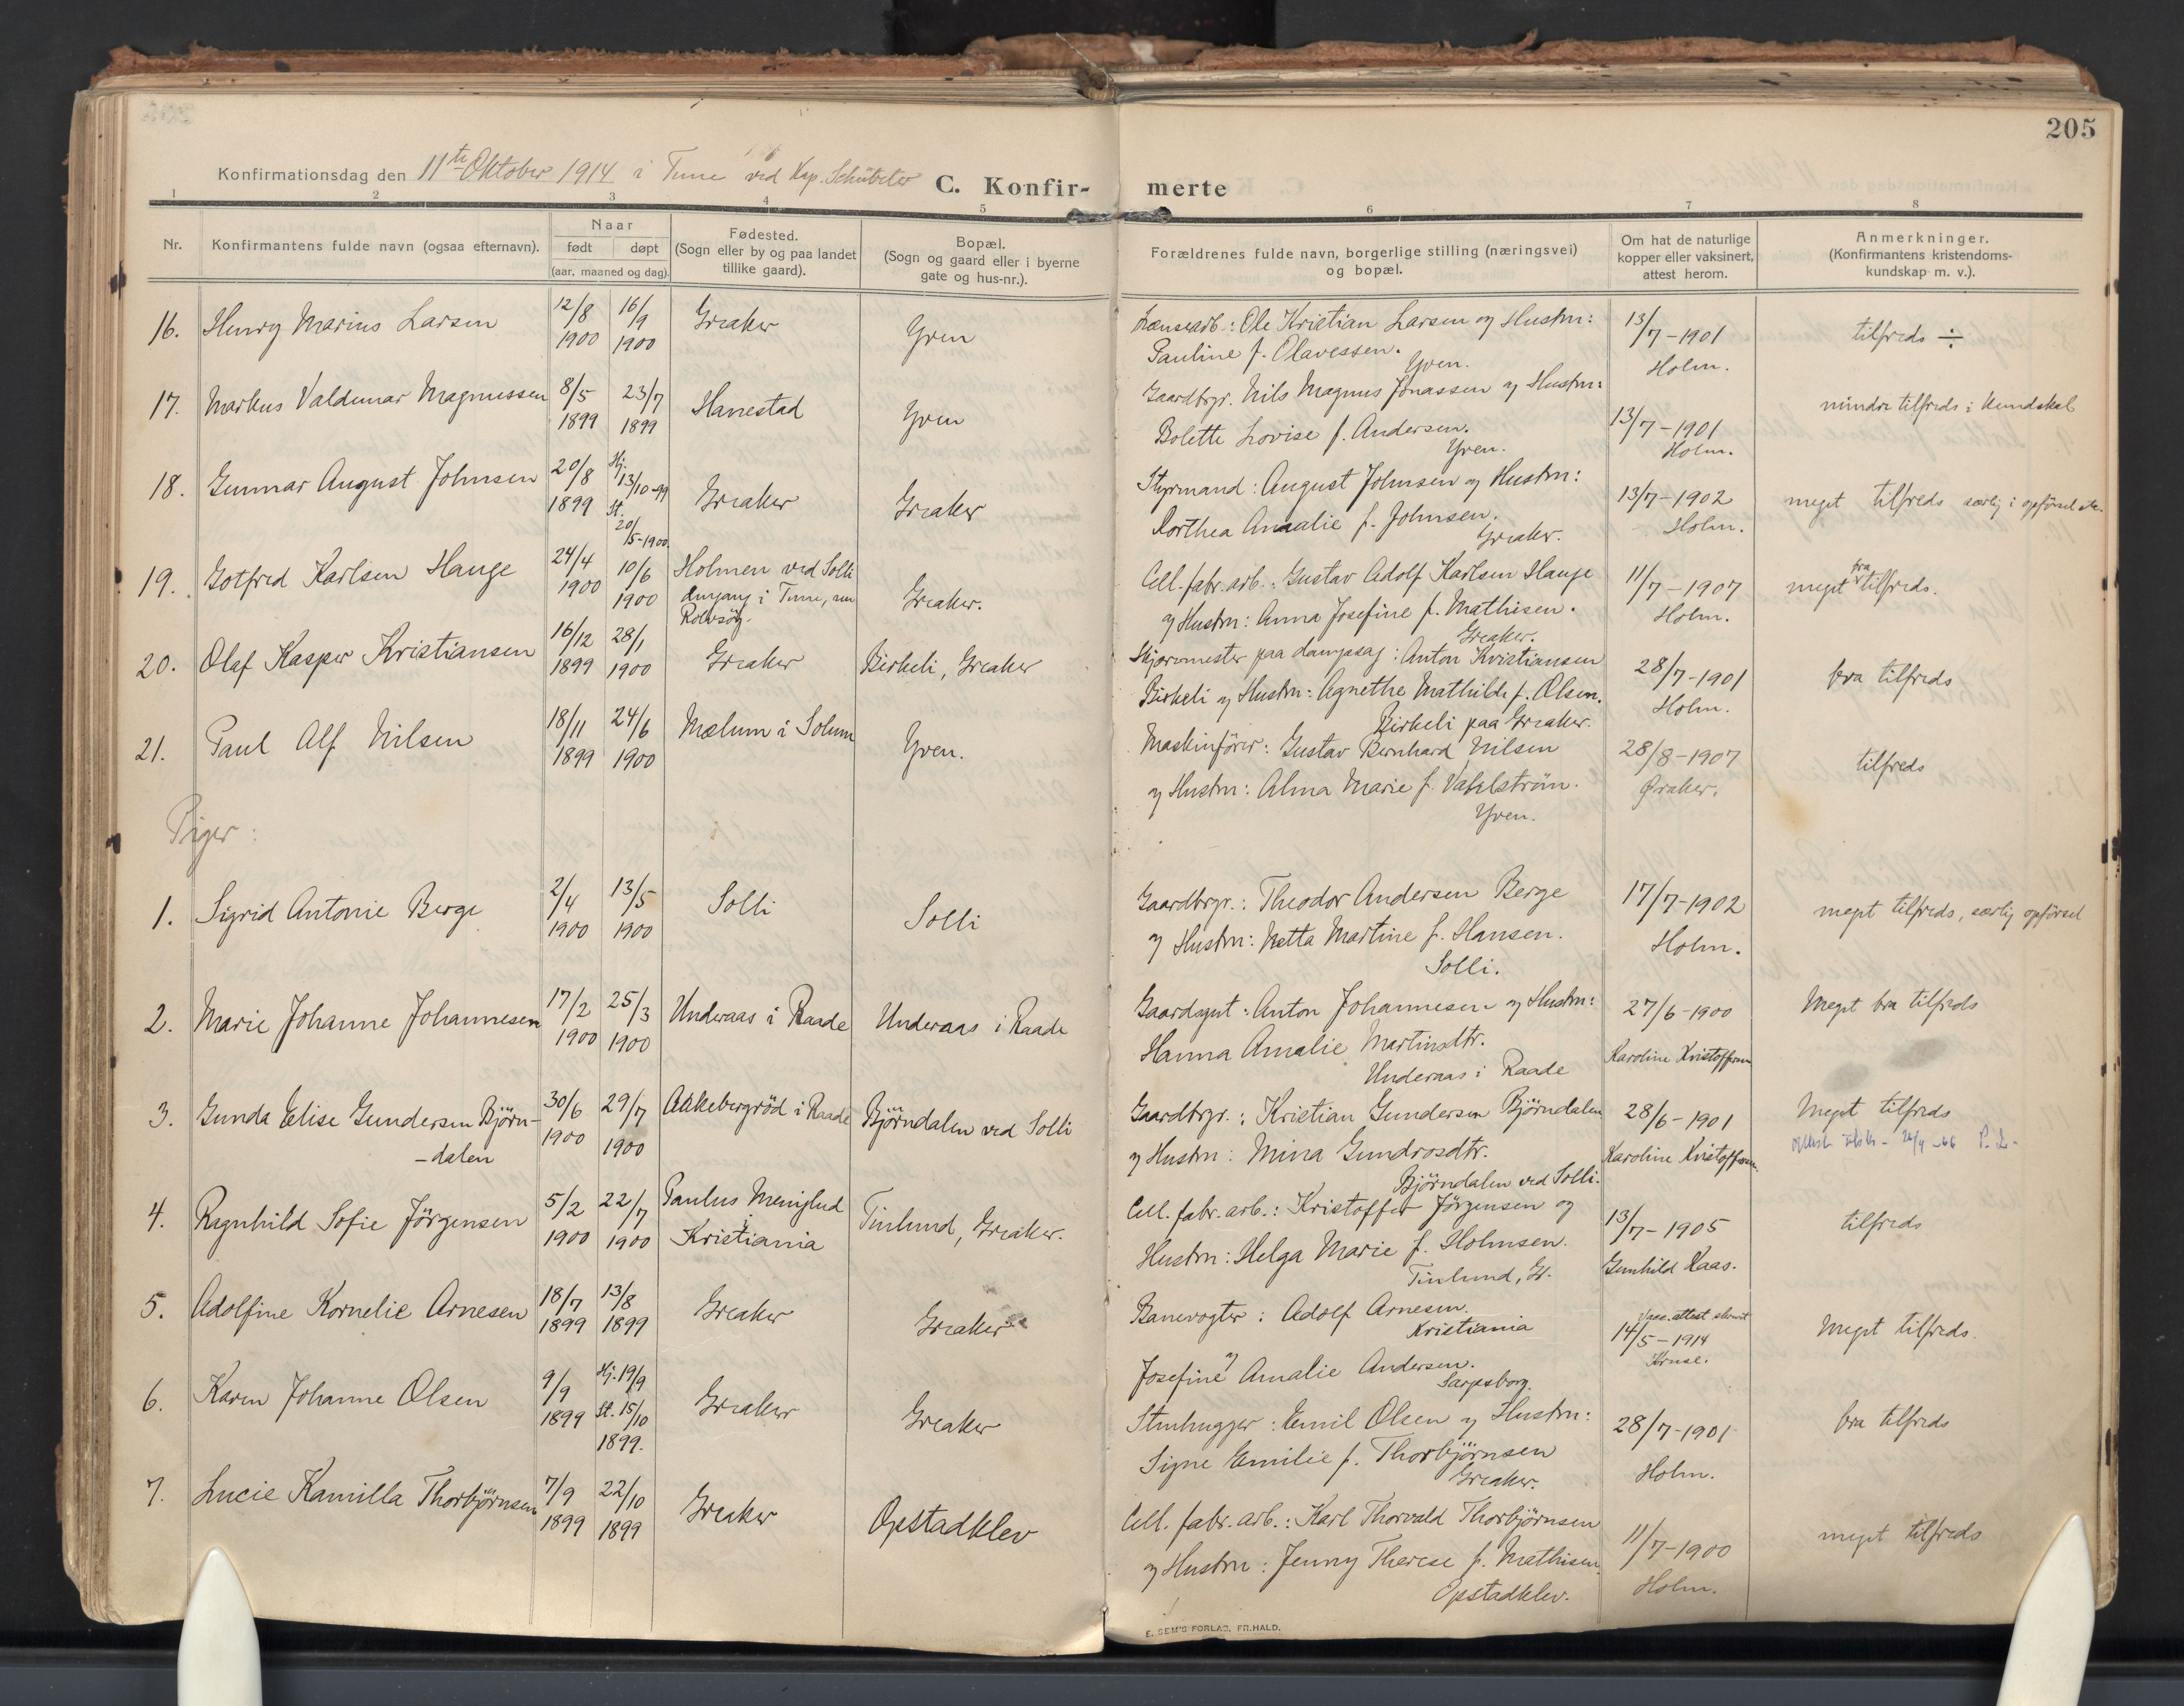 205
Konfirmationsdag den 11te Oktober 1914 i Tune ved Kap.
C. Konfir- merte
1 2 3 4 5 6 7 8
Nr.
Konfirmantens fulde navn (ogsaa efternavn).
Naar
født døpt
(aar, maaned og dag).
Fødested.
(Sogn eller by og paa landet
tillike gaard).
Bopæl.
(Sogn og gaard eller i byerne
gate og hus-nr.).
Forældrenes fulde navn, borgerlige stilling (næringsvei)
og bopæl.
Om hat de naturlige
kopper eller vaksinert,
attest herom.
Anmerkninger.
(Konfirmantens kristendoms-
kundskap m. v.).
16. Henry Marius Larsen 12/8 1900 16/9 1900 Greaker Yven
Lænsearb.: Ole Kristian Larsen og Hustru:
Pauline f. Olavessen.
Yven.
13/7-1901
Holm.
tilfreds ÷
17. Markus Valdemar Magnussen 8/5 1899 23/7 1899 Hanestad Yven
Gaardbrgr. Nils Magnus Jonassen og Hustru:
Bolette Lovise f. Andersen.
Yven.
13/7-1901
Holm.
mindre tilfreds i kundskab
18. Gunnar August Johnsen 20/8 1899 Hj. 13/10-99 St. 20/5-1900. Greaker Greaker
Styrmand: August Johnsen og Hustru:
Dorthea Amalie f. Johnsen.
Greaker.
13/7-1902
Holm.
meget tilfreds særlig i opførsel
19. Gotfred Karlsen Hauge 24/4 1900 10/6 1900 Holmen ved Solli
dengang i Tune, nu
Rolvsöy. Greaker.
Cell. fabr. arb.: Gustav Adolf Karlsen Hauge
og Hustru: Anna Josefine f. Mathisen.
Greaker.
11/7-1907
Holm.
meget bra tilfreds.
20. Olaf Kasper Kristiansen 16/12 1899 28/1 1900 Greaker Birkeli, Greaker
Skjæremester paa dampsag: Anton Kristiansen
Birkeli og Hustru: Agnethe Mathilde f. Olsen.
Birkeli paa Greaker.
28/7-1901
Holm.
bra tilfreds
21. Paul Alf Nilsen 18/11 1899 24/6 1900 Mælum i Solum Yven.
Maskinfører: Gustav Bernhard Nilsen
og Hustru: Alma Marie f. Vafelström.
Yven.
28/8-1907
Øraker.
tilfreds
Piger:
1. Sigrid Antonie Berge 2/4 1900 13/5 1900 Solli Solli
Gaardbrgr.: Theodor Andersen Berge
og Hustru: Netta Martine f. Hansen.
Solli.
17/7-1902
Holm.
meget tilfreds, særlig opførsel
2. Marie Johanne Johannesen 17/2 1900 25/3 1900 Underaas i Raade Underaas i Raade
Gaardsgut: Anton Johannesen og Hustru:
Hanna Amalie Martinsdtr.
Underaas i Raade
27/6-1900
Karoline Kristoffersen
Meget bra tilfreds
3. Gunda Elise Gundersen Björn-
-dalen 30/6 1900 29/7 1900 Aakebergröd i Raade Björndalen ved Solli
Gaardbrgr.: Kristian Gundersen Björndalen
og Hustru: Mina Gundrosdtr.
Björndalen ved Solli.
28/6-1901
Karoline Kristoffersen
Meget tilfreds
4. Ragnhild Sofie Jörgensen 5/2 1900 22/7 1900 Paulus Menighed
i
Kristiania Tinlund, Greaker.
Cell. fabr. arb.: Kristoffer Jörgensen og
Hustru: Helga Marie f. Holmsen.
Tinlund, Gr.
13/7-1905
Gunhild Kaas.
tilfreds
5. Adolfine Kornelie Arnesen 18/7 1899 13/8 1899 Greaker Greaker
Banevogter: Adolf Arnesen.
Kristiania
og
Josefine Amalie Andersen.
Sarpsborg.
Vacc. attest
14/5-1914
Kruse.
Meget tilfreds.
6. Karen Johanne Olsen 9/9 1899 Hj. 19/9 St. 15/10 1899. Greaker Greaker
Stenhugger: Emil Olsen og Hustru:
Signe Emilie f. Thorbjörnsen
Greaker.
28/7-1901
Holm.
bra tilfreds
7. Lucie Kamilla Thorbjørnsen 7/9 1899 22/10 1899 Greaker Opstadklev
Cell. fabr. arb.: Karl Thorvald Thorbjørnsen
og Hustru: Jenny Therese f. Mathisen.
Opstadklev.
11/7-1900
Holm.
meget tilfreds
E. SEM'S FORLAG, FR.HALD.